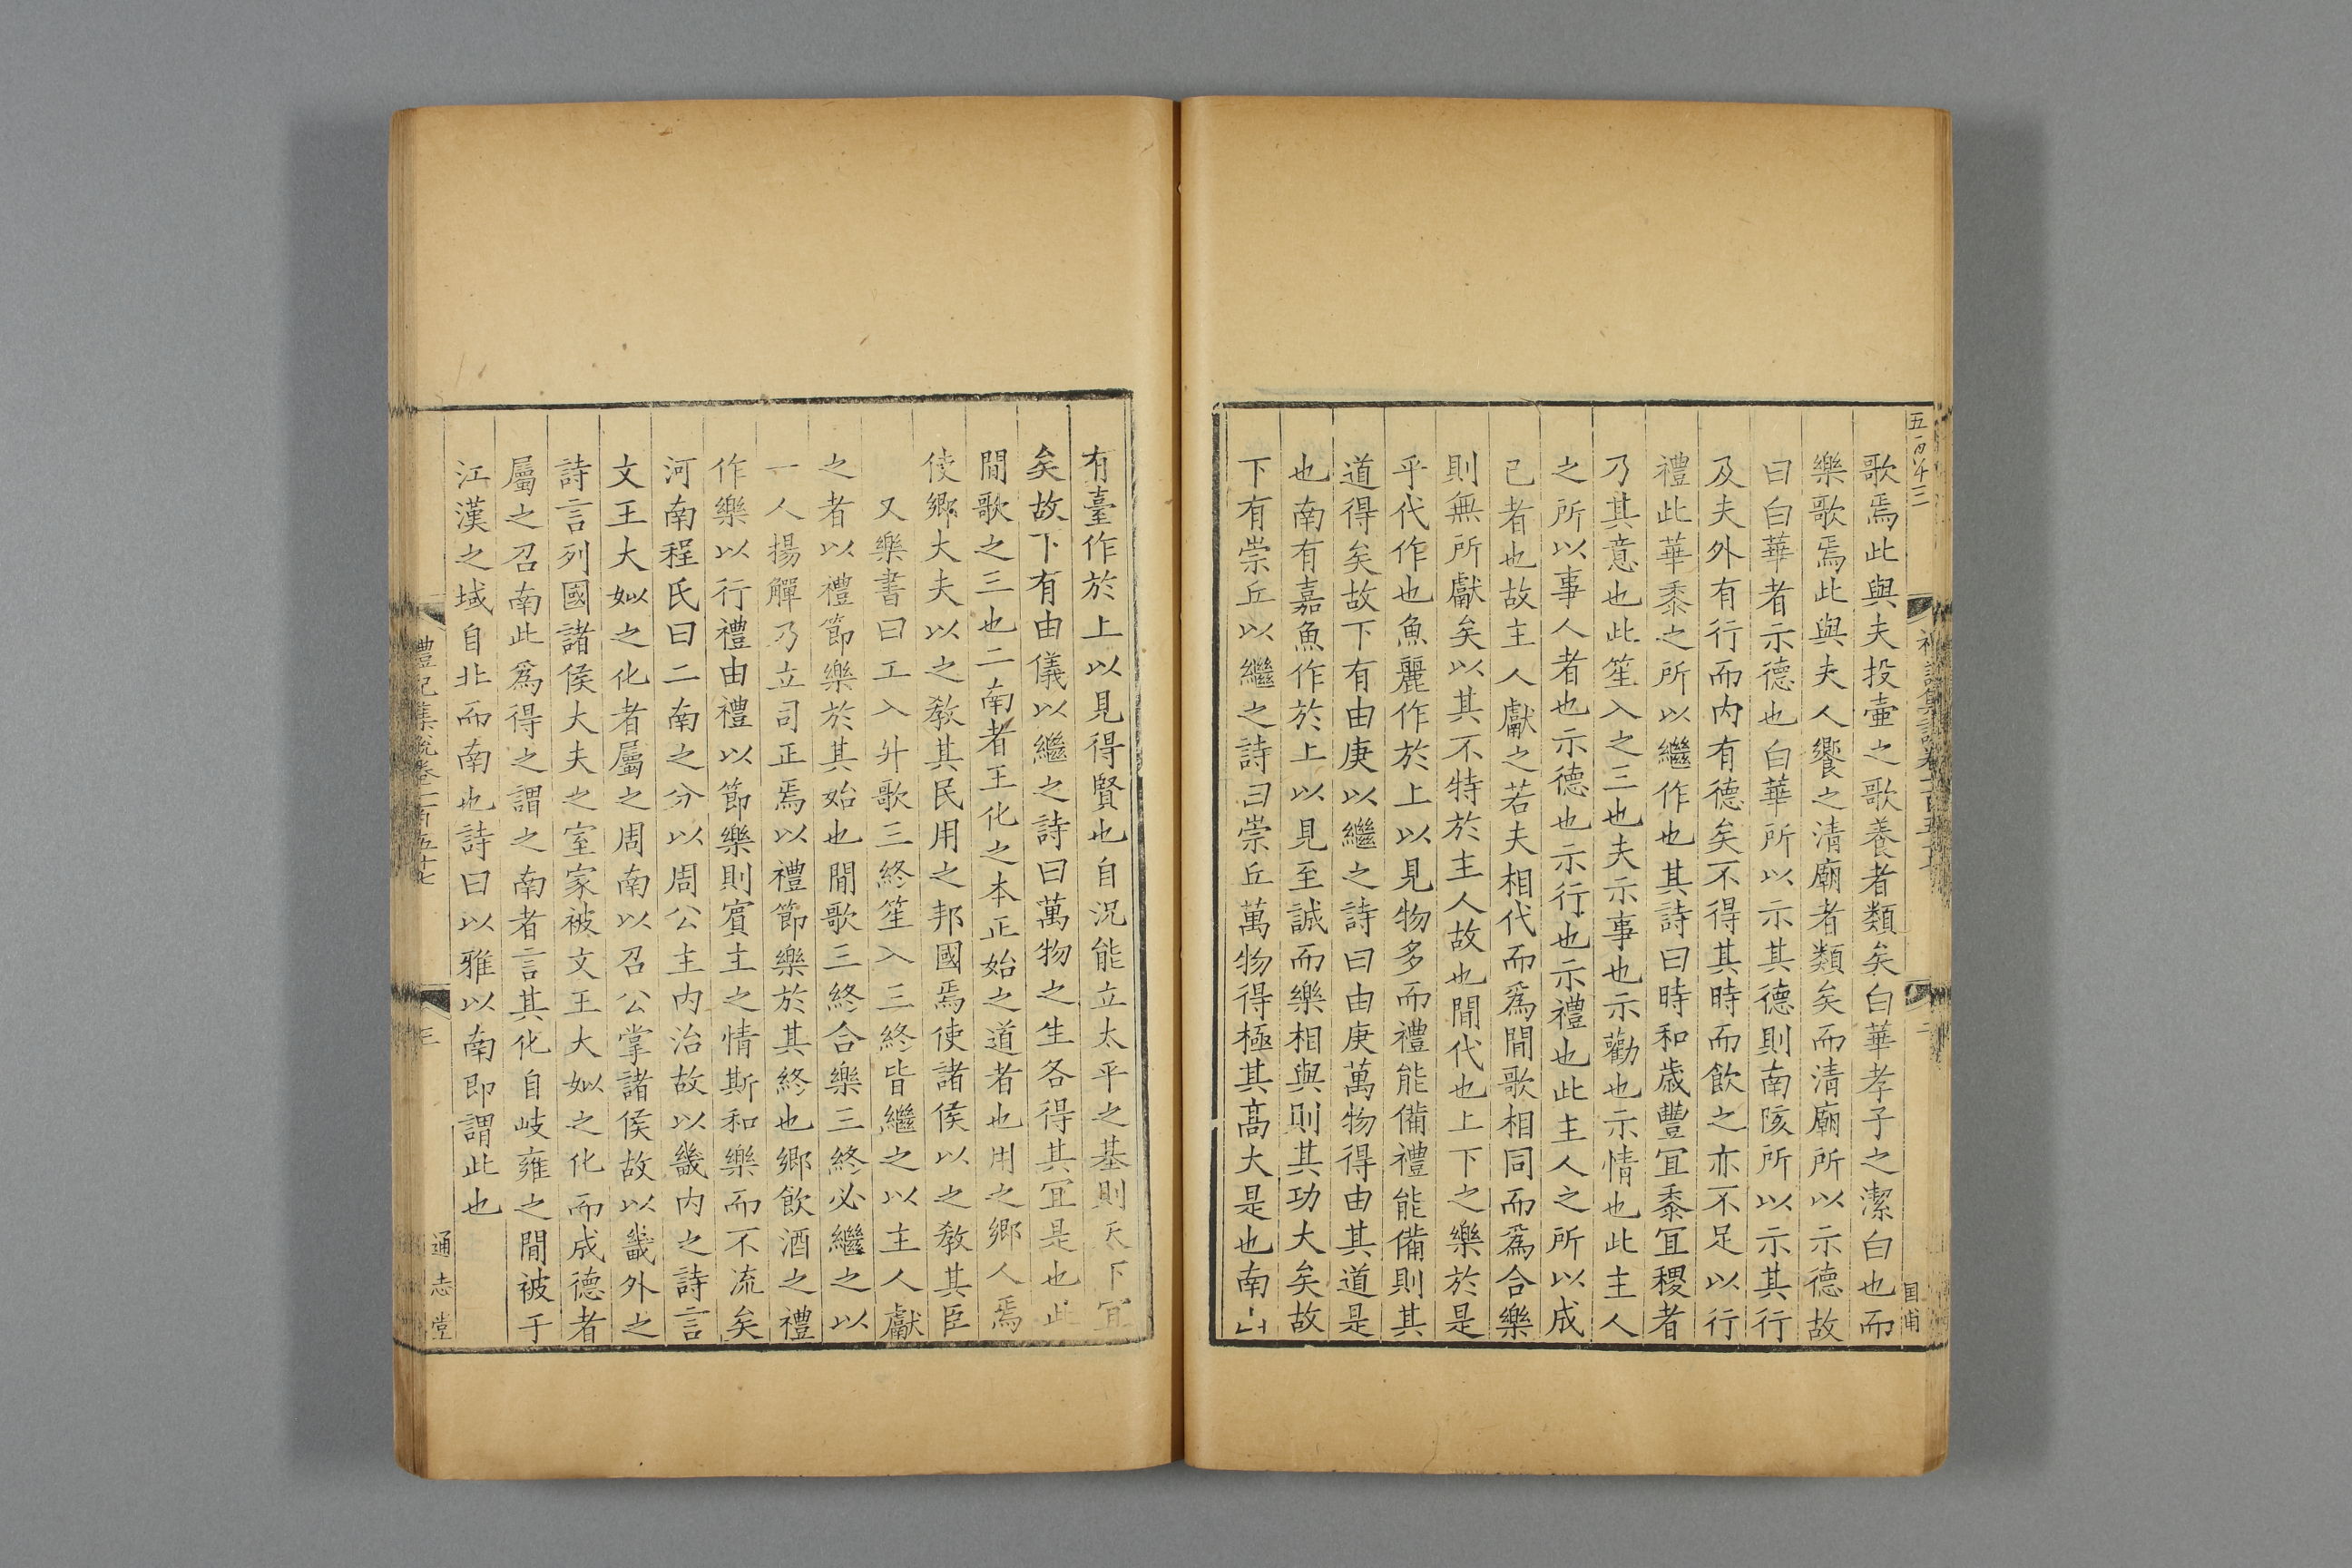 歌焉此與夫投壺之歌養者類矣白華孝子之潔白也而
樂歌焉此與夫人饗之清廟者類矣而清廟所以示德故
曰白華者示德也白華所以示其德則南陔所以示其行
及夫外有行而内有德矣不得其時而飲之亦不足以行
禮此華黍之所以繼作也其詩曰時和歲豐宜黍宜稷者
乃其意也此笙入之三也夫示事也示勸也示情也此主人
之所以事人者也示德也示行也示禮也此主人之所以成
已者也故主人獻之若夫相代而爲閒歌相同而爲合樂
則無所獻矣以其不特於主人故也閒代也上下之樂於是
乎代作也魚麗作於上以見物多而禮能備禮能備則其
道得矣故下有由庚以繼之詩曰由庚萬物得由其道是
也南有嘉魚作於上以見至誠而樂相與則其功大矣故
下有崇丘以繼之詩曰崇丘萬物得極其髙大是也南山
有臺作於上以見得賢也自況能立太平之基則天下宜
矣故下有由儀以繼之詩曰萬物之生各得其宜是也此
閒歌之三也二南者王化之本正始之道者也用之鄉人焉
使鄉大夫以之教其民用之邦國焉使諸侯以之教其臣
又樂書曰工入升歌三終笙入三終皆繼之以主人獻
之者以禮節樂於其始也閒歌三終合樂三終必繼之以
一人揚觶乃立司正焉以禮節樂於其終也鄉飲酒之禮
作樂以行禮由禮以節樂則賓主之情斯和樂而不流矣
河南程氏曰二南之分以周公主内治故以畿内之詩言
文王大姒之化者屬之周南以召公掌諸侯故以畿外之
詩言列國諸侯大夫之室家被文王大姒之化而成德者
屬之召南此爲得之謂之南者言其化自岐雍之閒被于
江漢之域自北而南也詩曰以雅以南即謂此也
禮記集說卷一百五十七
三
通志堂